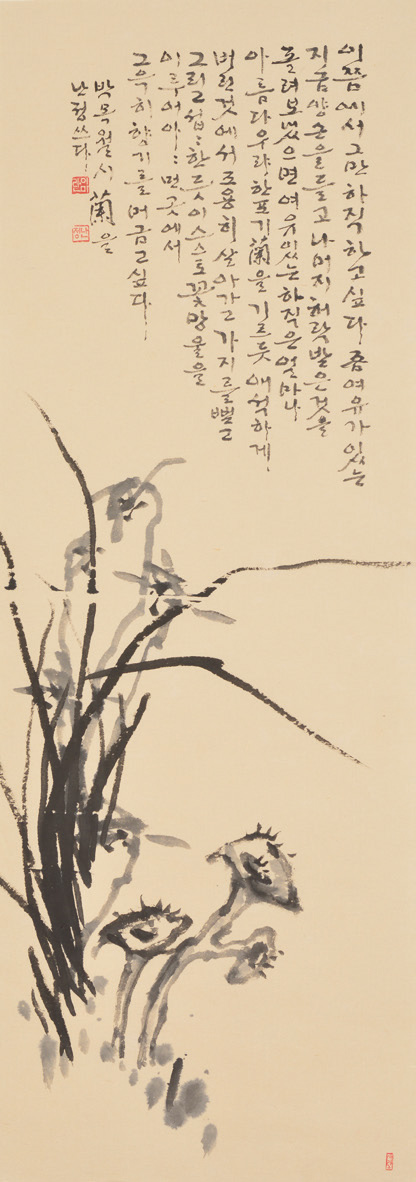 이쯤에서 그만 하직하고 싶다. 좀 여유가 있는
지금 양손을 들고 나머지 허락받은것을
돌려보냈으면 여유있는 하직은 얼마나
아름다우랴 한포기 蘭을 기르듯 애석하게.
버린것에서 조용히 살아가고 가지를 뻗고
그리고 섭〻한 뜻이 스스로 꽃망울을
이루어 아〻 먼 곳에서
그윽히 향기를 머금고 싶다.
박목월 시 蘭을
난정쓰다.